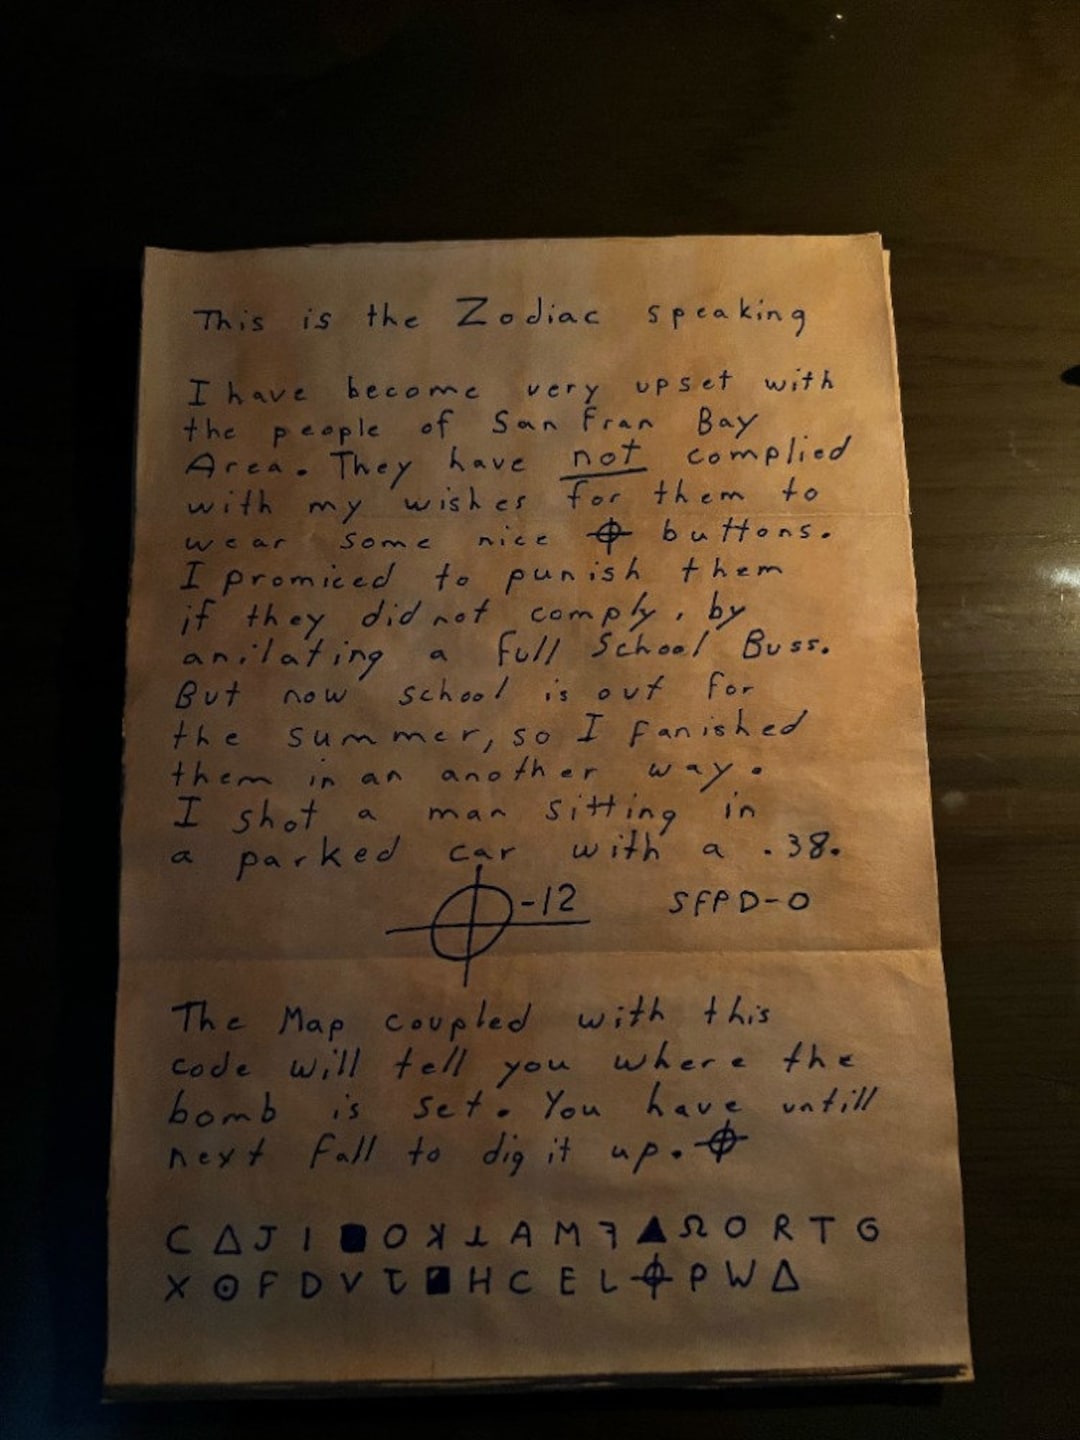 This is the Zodiac speaking
I have become very upset with
the people of San Fran Bay
Area. They have not complied
with my wishes for them to
wear some nice ⌖ buttons.
I promiced to punish them
if they did not comply, by
anilating a full School Buss.
But now school is out for
the summer, so I fanished
them in an another way.
I shot a man sitting in
a parked car with a .38.
⌖-12 SFPD-0
The Map coupled with this
code will tell you where the
bomb is set. You have untill
next fall to dig it up. ⌖
C Δ J I ■ O ꓘ ⊥ A M ꟻ ▲ Ω O R T G
X ⊙ F D V Ʇ ◪ H C E L ⌖ P W Δ